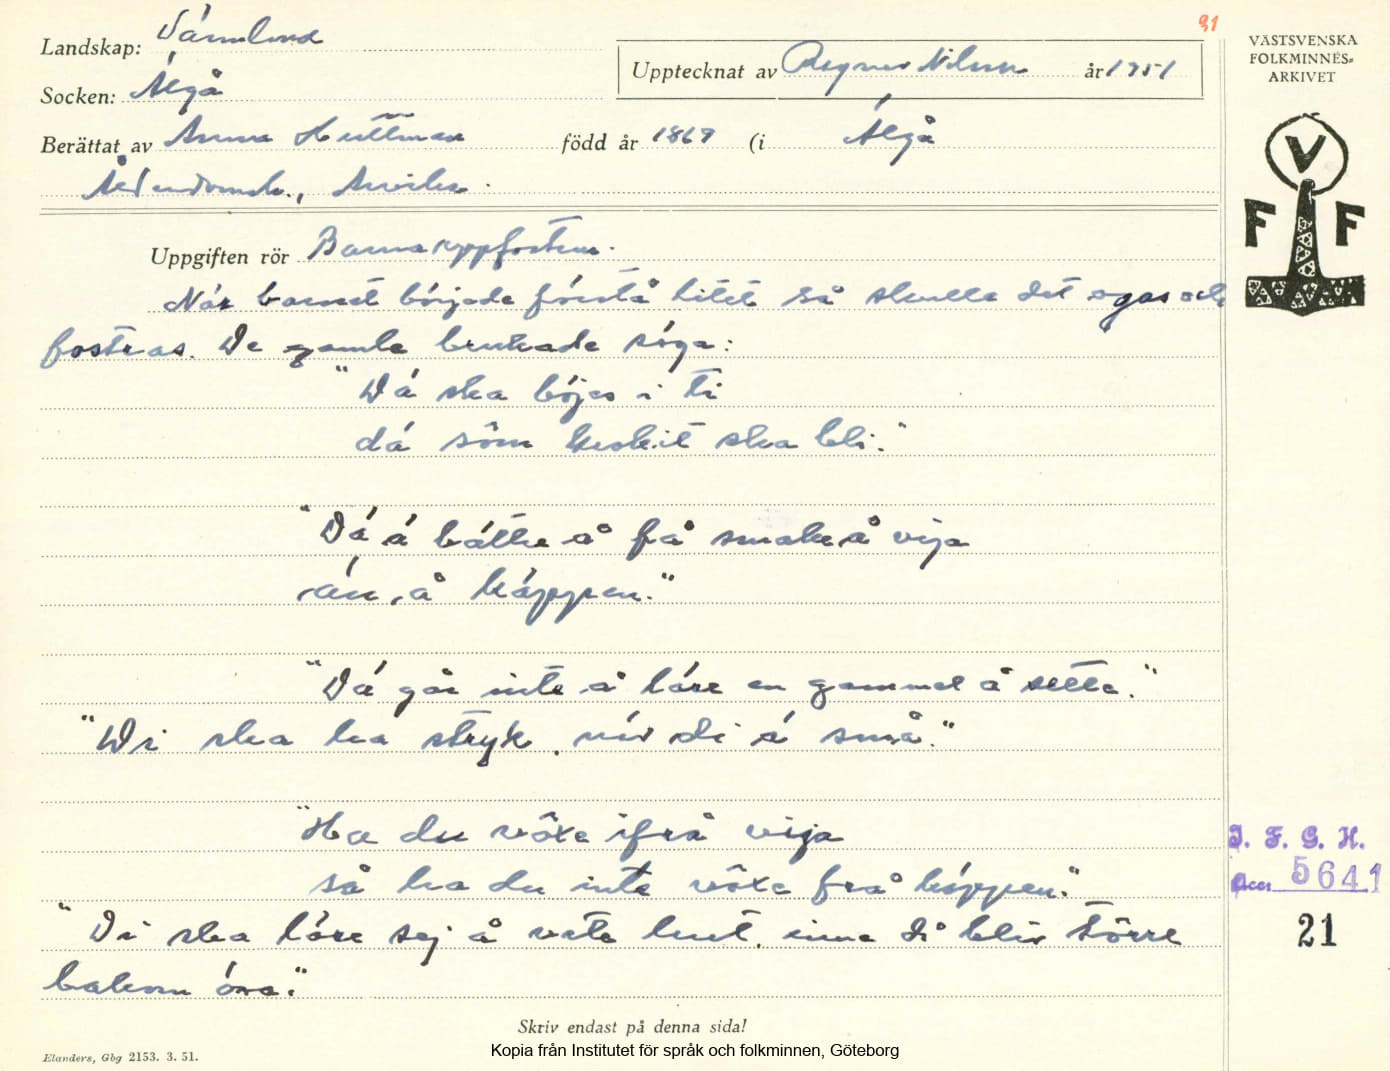 91
Landskap: Värmland
Socken: Älgå
Upptecknat av Ragnar Nilsson år 1951
Berättat av Anna Hultman född år 1869 (i Älgå
Ålderdomsh., Arvika.
VÄSTSVENSKA
FOLKMINNES-
ARKIVET
V
F F
Uppgiften rör Barnauppfostran.
När barnet började förstå litet så skulle det agas och
fostras. De gamla brukade säga:
"Dä ska böjes i ti
dä söm krokit ska bli."
"Dä ä bättre å få smake å vija
än å käppen."
"Dä går inte å läre en gammel å sitte."
"Di ska ha stryk, när di ä små."
"Ha du växe ifrå vija
så ha du inte växe frå käppen."
"Di ska läre sej å veta hut, inna di blir törre
bakom öra."
I. F. G. H.
Acc. 5641
21
Skriv endast på denna sida!
Elanders, Gbg 2153. 3. 51.
Kopia från Institutet för språk och folkminnen, Göteborg